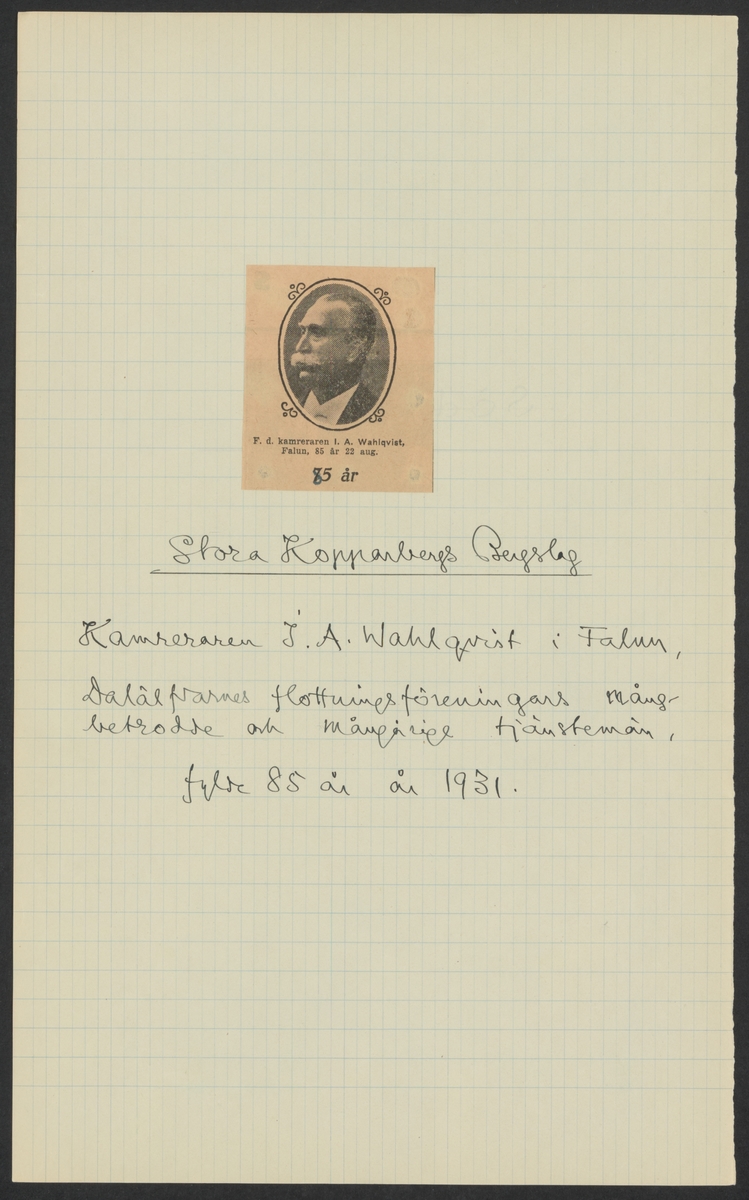 F. d. kamreraren I. A. Wahlqvist,
Falun, 85 år 22 aug.
85 år
Stora Kopparbergs Bergslag
Kamreraren I. A. Wahlqvist i Falun,
Dalälfvarnes flottningsföreningars mång-
betrodde och mångårige tjänsteman,
fylde 85 år år 1931.